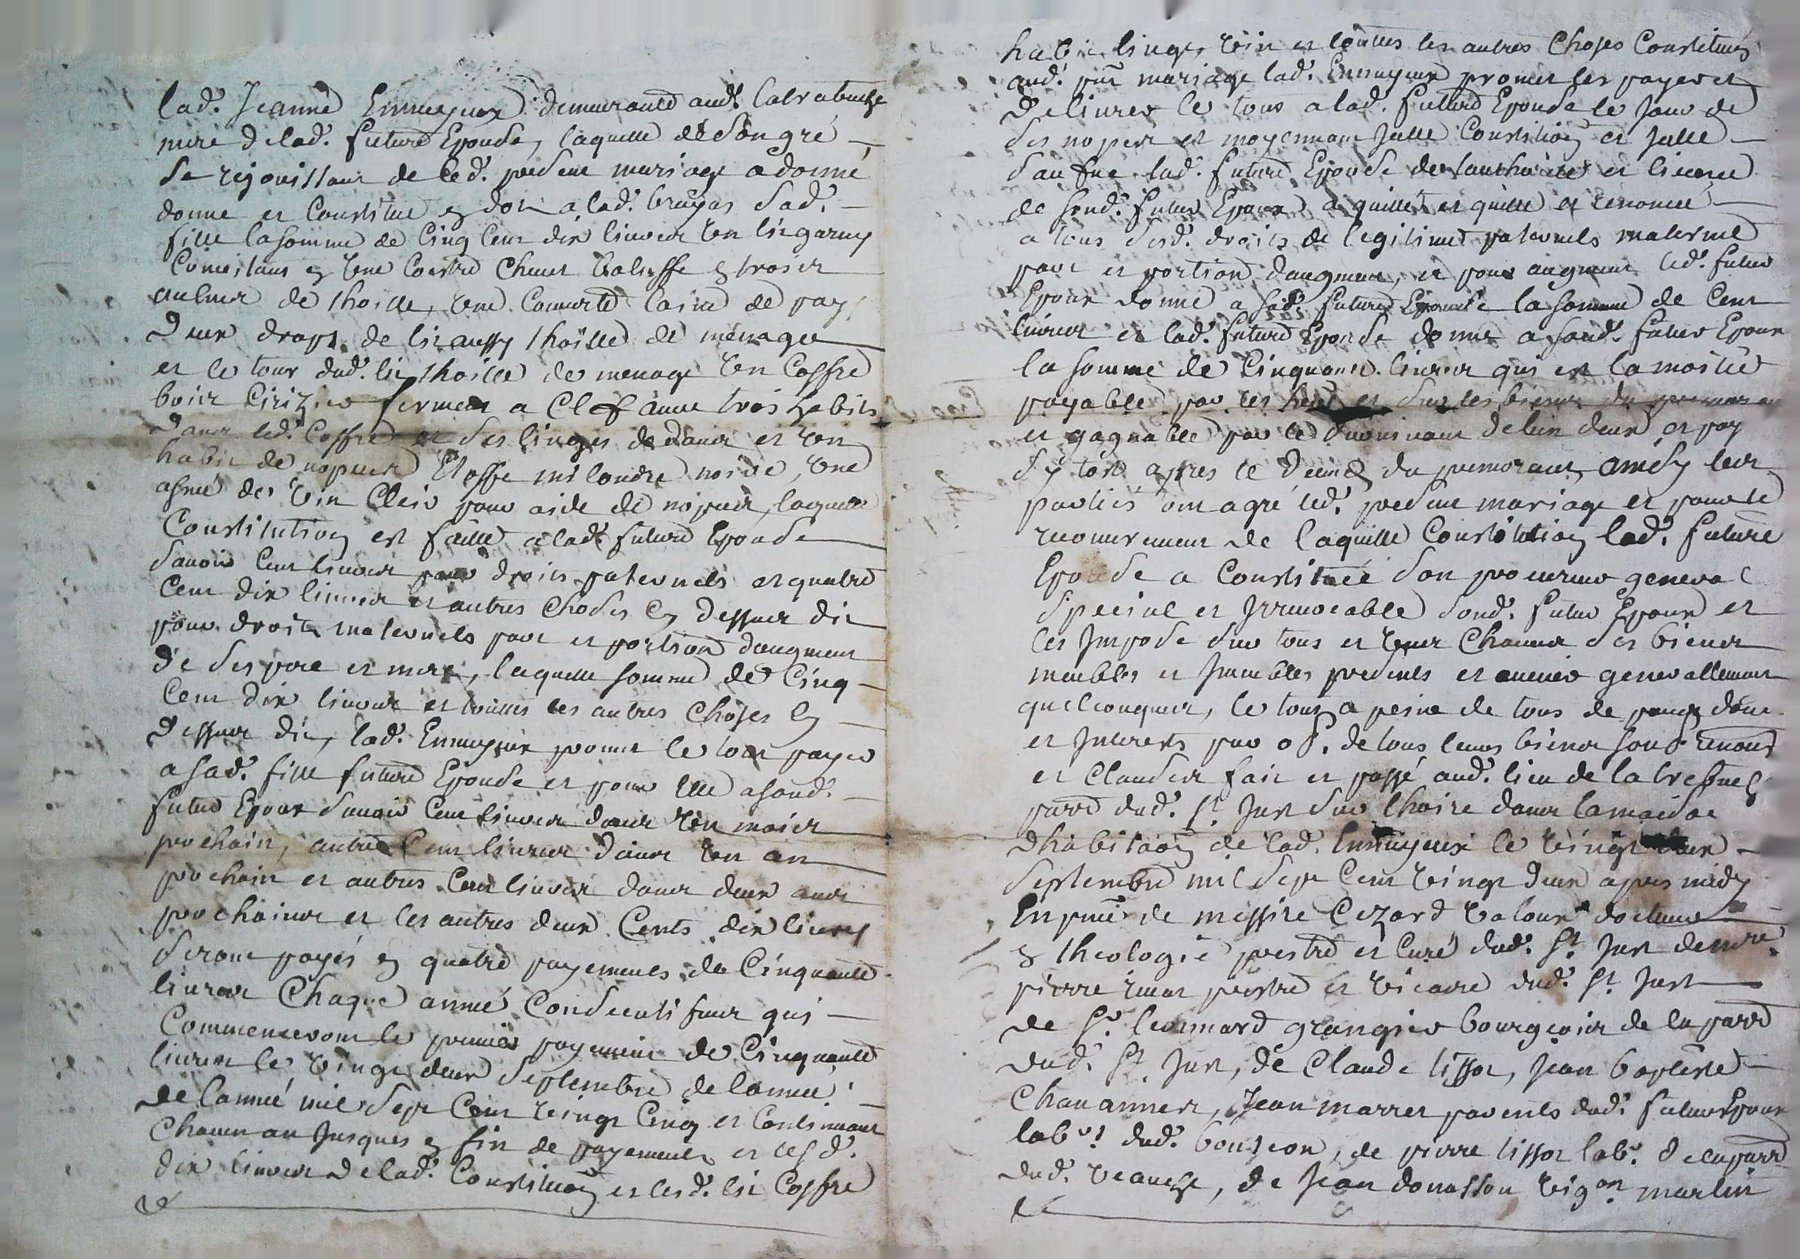 lad.e Jeanne Ennuyeux demeurante aud.
mere de lad.e future Epouse, laquelle de son gré
se rejouissant de led.t present mariage a donné
donne et Constitue en dot a lad.e bruyas sad.e
fille la somme de Cinq Cent dix livres un lict garny
Consistant en une Coistre Chevet balouffe en trois
aulnes de thoille, une Couverte laine de pays
deux draps de lit aussy thoille de menage
et le tour dud.t lit thoille de menage un Coffre
bois Cirizier fermant a Clef anne trois habits
dans led.t Coffre et ses linges dedans et un
habit de nopces Etoffe mi londre noire, une
asnée de vin Clair pour aide de nopces, laquelle
Constitution est faitte a lad.e future Epouse
savoir Cent livres pour droits paternels et quatre
Cent dix livres et autres Choses cy dessus dit
pour droits maternels part et portion d'augment
de ses pere et mere, laquelle somme de Cinq
Cent dix livres et touttes les autres Choses cy
dessus dit, lad.e Ennuyeux promet le tout payer
a sad.e fille future Epouse et pour Elle a sond.t
futur Epoux savoir Cent livres dans un mois
prochain, autres Cent livres dans un an
prochain et autres Cent livres dans deux ans
prochaines et les autres deux Cents dix livres
seront payés en quatre payements de Cinquante
livres Chaque année Consecutifves qui
Commenceront le premier payement de Cinquante
livres le vingt deux Septembre de lannée
de lannée mil sept Cent vingt Cinq et Continuant
Chacun an Jusques en fin de payements et lesd.
dix livres de lad.e Constituon et lesd.t lit Coffre
habit linges vin et touttes les autres Choses Constitués
aud.t pnt mariage lad.e Ennuyeux promet les payer et
delivrer le tous a lad.e future Epouse le jour de
ses nopces et moyennant Jcelle Constituon et Jcelle
saufve lad.e future Epouse de l'authorité et licence
de sond.t futur Epoux a quitté et quitte et renoncé
a tous sesd.t droits de legitime paternels maternel
part et portion d'augment, et pour augment led.t futur
Epoux donne a sad.e future Epouse la somme de Cent
livres et lad.e future Epouse donne a sond.t futur Epoux
la somme de Cinquante livres qui est la moitié
payable par les et sur les biens du premourant
et gagnable par le survivant de l'un deux et pay
sy tost apres le deceds du premourant, ainsy leur
parties ont agré led.t present mariage et pour le
recouvrement de laquelle Constitution lad.e future
Epouse a Constitué son procureur general
special et Jrrevocable sond.t futur Epoux et
les Jmpose sur tous et uns Chacuns ses biens
meubles et Jmeubles presents et avenir generallement
quelconques, le tous a peine de tous depens dom
et Jnterests par o/. de tous leurs biens sous renons
et Clauses fait et passé aud.t lieu de la bresne
parr dud.t St Just sur Lhoire dans la maison
dhabitaon de lad.e Ennuyeux le vingt deux
Septembre mil sept Cent vingt deux apres midy
En pnce de messire Cezard Valoux docteur
en theologie prestre et Curé dud.t St Just de m.re
pierre prestre et vicaire dud.t St Just
de Sr leonnard grangier bourgeois de la parr
dud.t St Just, de Claude tissot, Jean baptiste
Chavannes, Jean marret parents dud.t futur Epoux
lab.rs dud.t bouzeon, de pierre tissot lab.r de la parr
dud.t veauche, de Jean donasson vigon martin